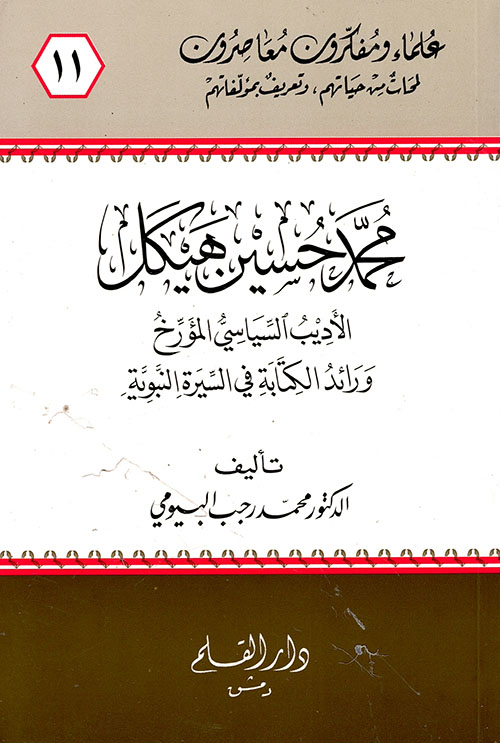 علماء ومفكرون معاصرون
لمحات من حياتهم، وتعريف بمؤلفاتهم
١١
محمد حسين هيكل
الأديب السياسي المؤرخ
ورائد الكتابة في السيرة النبوية
تأليف
الدكتور محمد رجب البيومي
دار القلم
دمشق